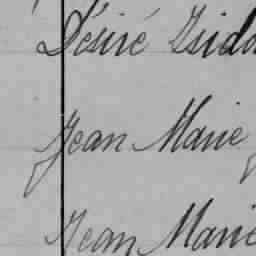 Désiré Isido
Jean Marie
Jean Marie